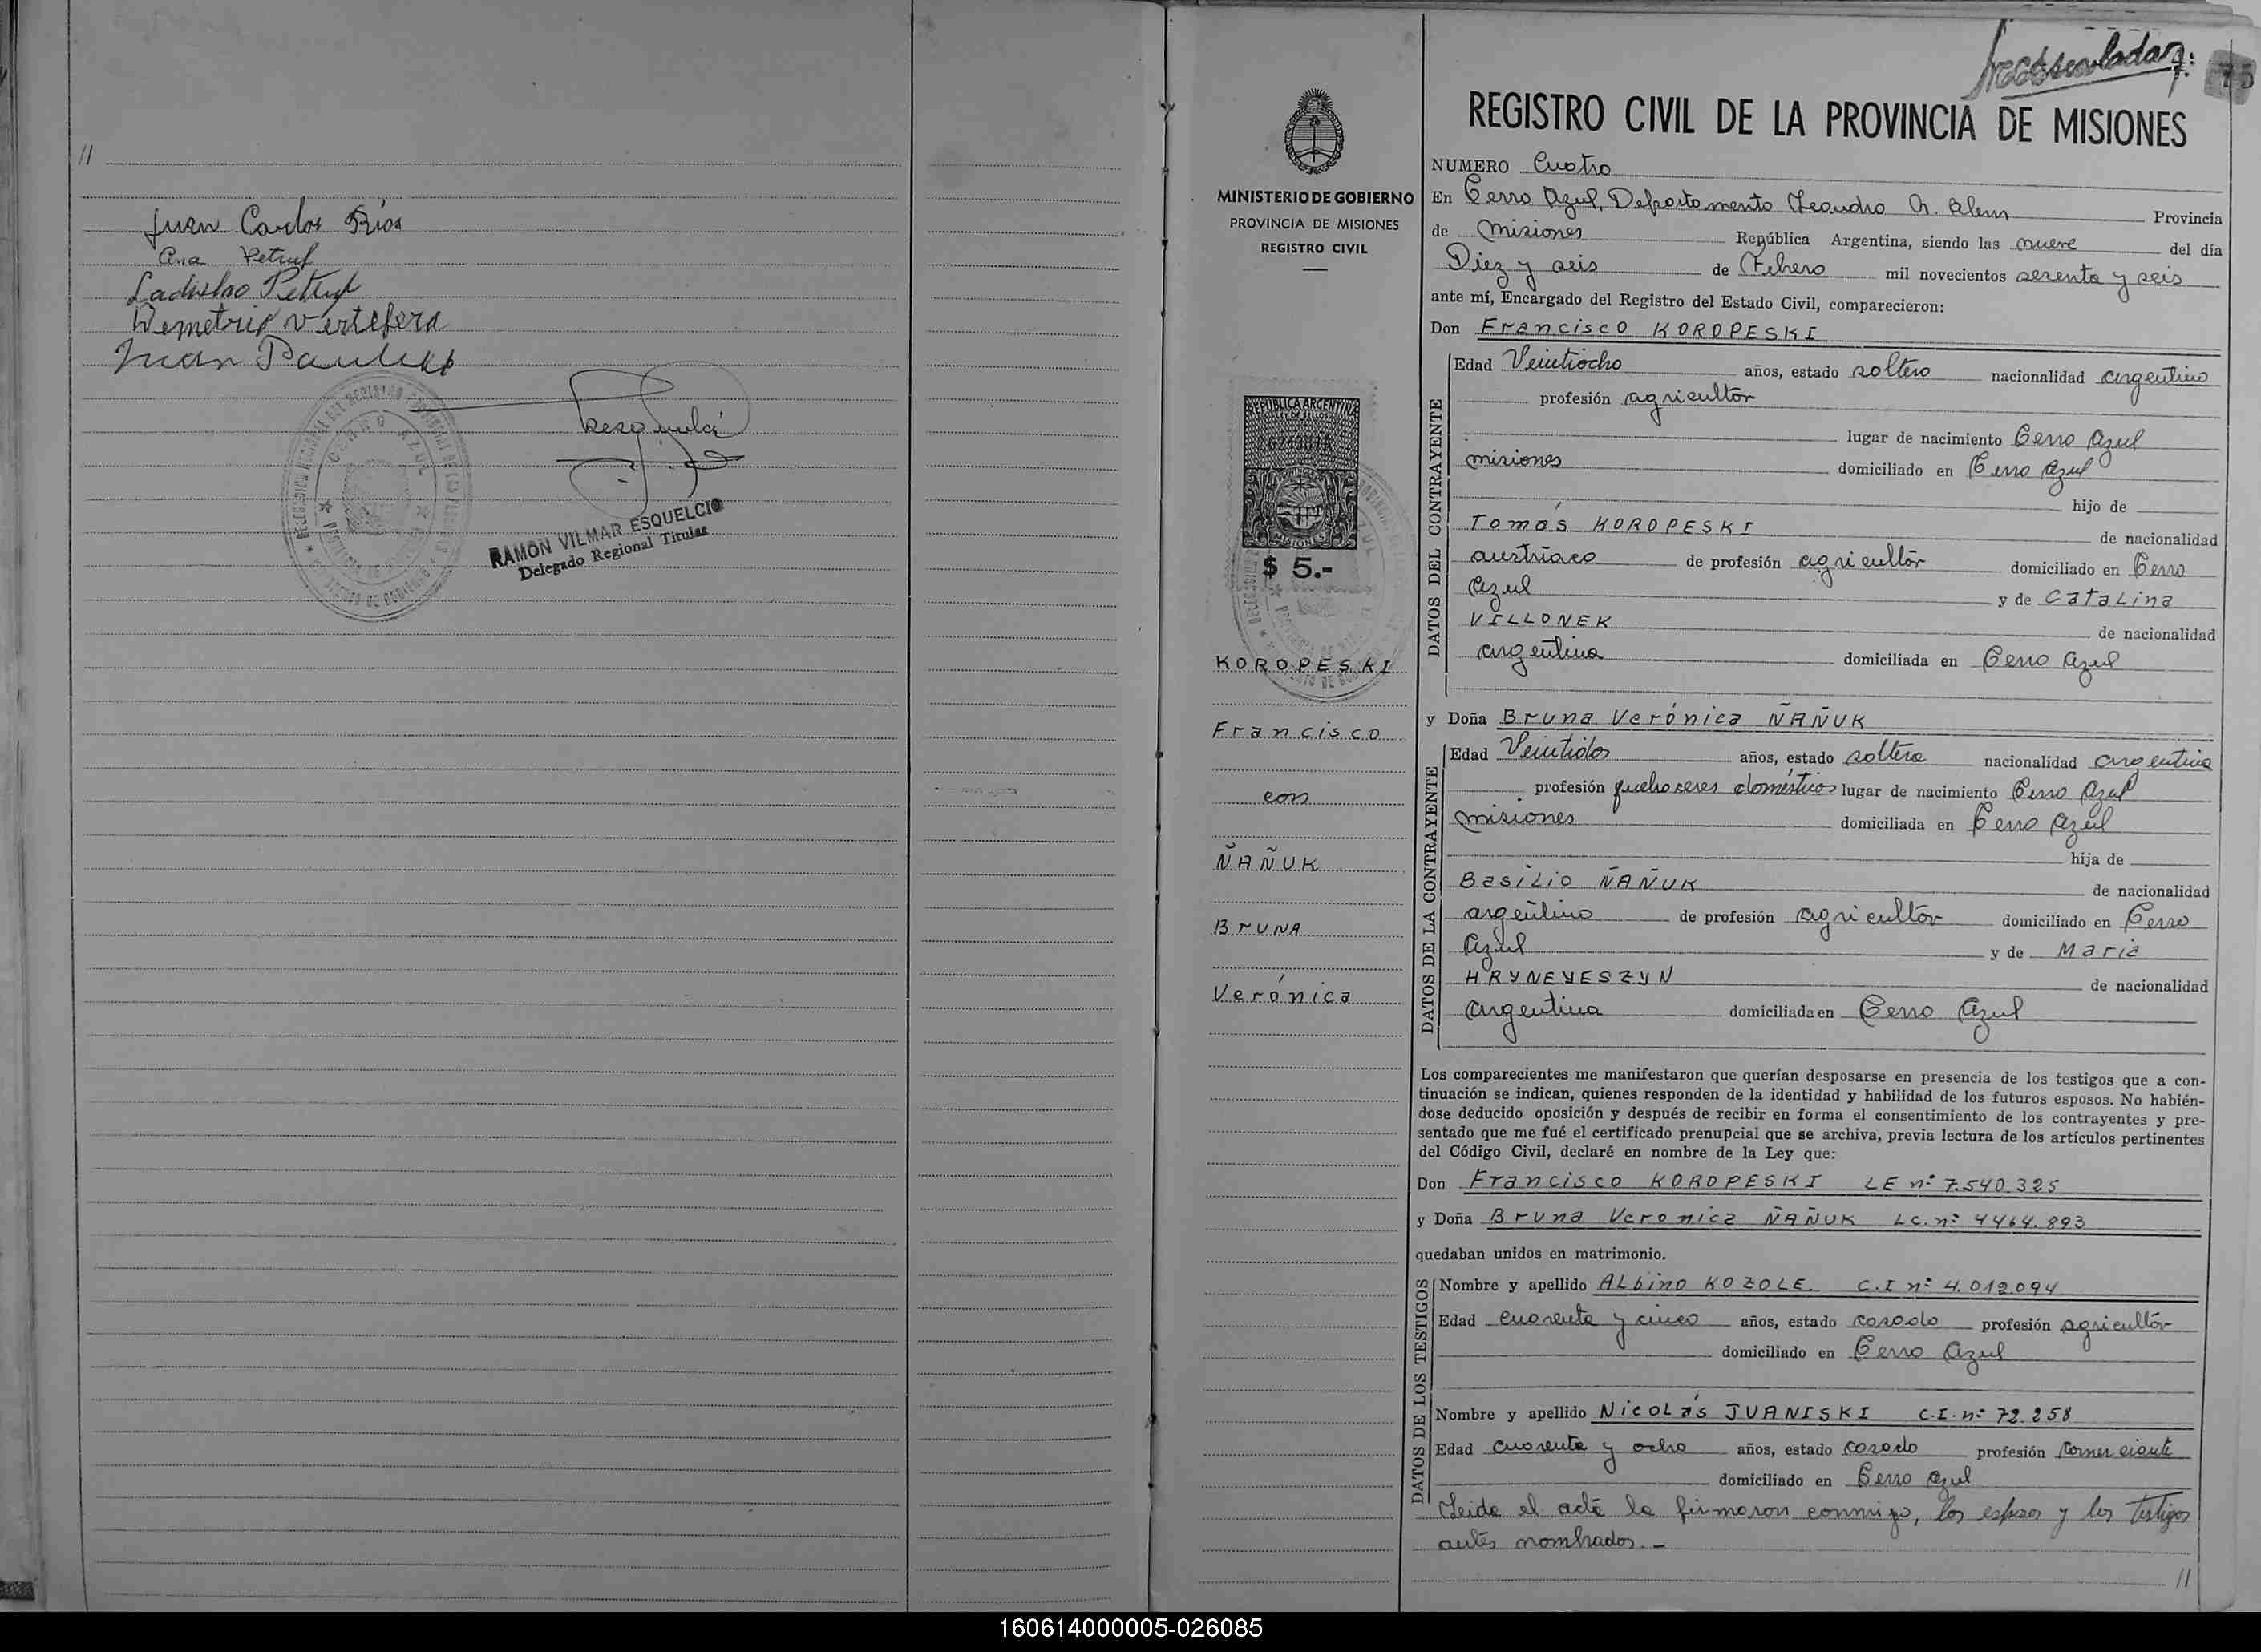 //
Juan Carlos Ríos
Ana Petruf
Ladislao Petruf
Demetrio
Juan
CERRO AZUL
RAMON VILMAR ESQUELCIO
Delegado Regional Titular
75
MINISTERIO DE GOBIERNO
PROVINCIA DE MISIONES
REGISTRO CIVIL
REPUBLICA ARGENTINA
MISIONES
$ 5.-
KOROPESKI
Francisco
con
ÑAÑUK
BRUNA
Verónica
REGISTRO CIVIL DE LA PROVINCIA DE MISIONES
NUMERO Cuatro
En Cerro Azul, Departamento Leandro N. Alem Provincia
de Misiones República Argentina, siendo las nueve del día
Diez y seis de Febrero mil novecientos sesenta y seis
ante mí, Encargado del Registro del Estado Civil, comparecieron:
Don Francisco KOROPESKI
DATOS DEL CONTRAYENTE
Edad Veintiocho años, estado soltero nacionalidad argentino
profesión agricultor
lugar de nacimiento Cerro Azul
Misiones domiciliado en Cerro Azul
hijo de
Tomás KOROPESKI de nacionalidad
austríaco de profesión agricultor domiciliado en Cerro
Azul y de Catalina
VILLONEK de nacionalidad
argentina domiciliada en Cerro Azul
y Doña Bruna Verónica ÑAÑUK
DATOS DE LA CONTRAYENTE
Edad Veintidos años, estado soltera nacionalidad argentina
profesión quehaceres domésticos lugar de nacimiento Cerro Azul
Misiones domiciliada en Cerro Azul
hija de
Basilio ÑAÑUK de nacionalidad
argentino de profesión agricultor domiciliado en Cerro
Azul y de Maria
HRYNEYESZYN de nacionalidad
argentina domiciliada en Cerro Azul
Los comparecientes me manifestaron que querían desposarse en presencia de los testigos que a con-
tinuación se indican, quienes responden de la identidad y habilidad de los futuros esposos. No habién-
dose deducido oposición y después de recibir en forma el consentimiento de los contrayentes y pre-
sentado que me fué el certificado prenupcial que se archiva, previa lectura de los artículos pertinentes
del Código Civil, declaré en nombre de la Ley que:
Don Francisco KOROPESKI LE nº 7.540.325
y Doña Bruna Veronica ÑAÑUK LC. nº 4464.893
quedaban unidos en matrimonio.
DATOS DE LOS TESTIGOS
Nombre y apellido ALbino KOZOLE. C.I nº 4.012.094
Edad cuarenta y cinco años, estado casado profesión agricultor
domiciliado en Cerro Azul
Nombre y apellido Nicolás JUANISKI C.I. nº 72.258
Edad cuarenta y ocho años, estado casado profesión comerciante
domiciliado en Cerro Azul
Leída el acta la firmaron conmigo, los esposos y los testigos
antes nombrados. -
//
160614000005-026085